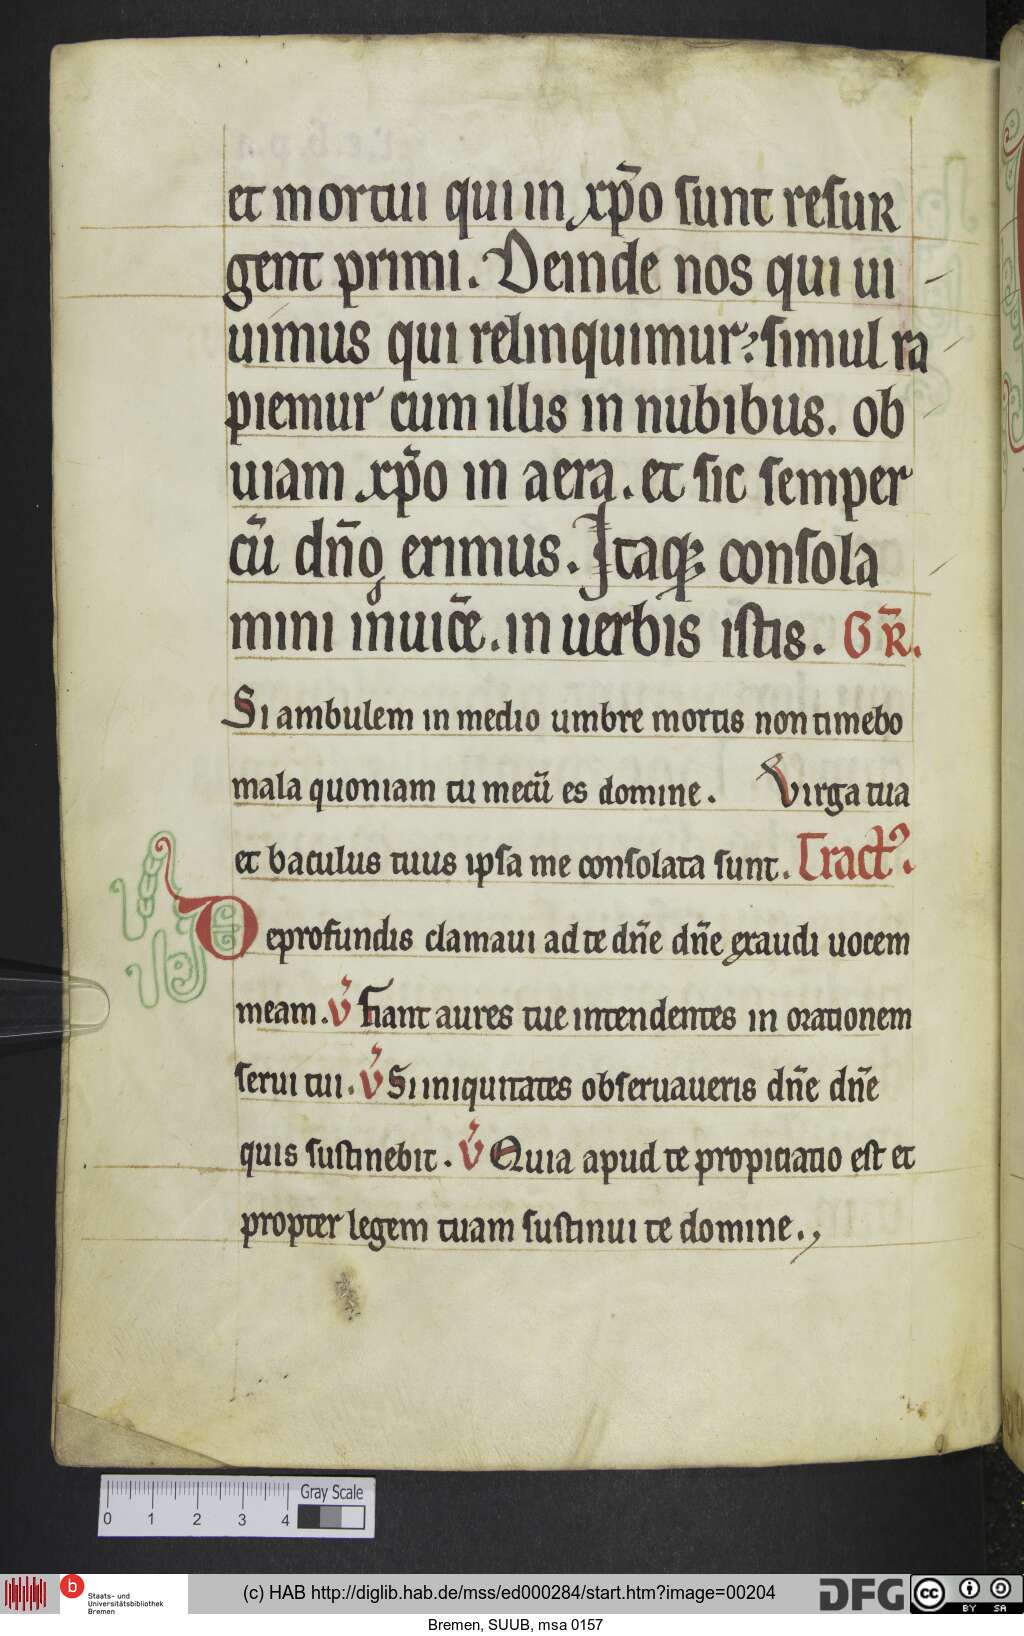 et mortui qui in xp̄o sunt resur
gent primi. Deinde nos qui ui
uimus qui relinquimur: simul ra
piemur cum illis in nubibus. ob
uiam xp̄o in aera. et sic semper
cū dn̄o erimus. Itaq; consola
mini inuicē. in uerbis istis. GR̄.
Si ambulem in medio umbre mortis non timebo
mala quoniam tu mecū es domine. Virga tua
et baculus tuus ipsa me consolata sunt. Tract᷒.
De profundis clamaui ad te dn̄e dn̄e exaudi uocem
meam. V̄ Fiant aures tue intendentes in orationem
serui tui. V̄ Si iniquitates obseruaueris dn̄e dn̄e
quis sustinebit. V̄ Quia apud te propitiatio est et
propter legem tuam sustinui te domine.,
0 1 2 3 4 Gray Scale
b Staats- und
Universitätsbibliothek
Bremen
(c) HAB http://diglib.hab.de/mss/ed000284/start.htm?image=00204
DFG
cc BY SA
Bremen, SUUB, msa 0157